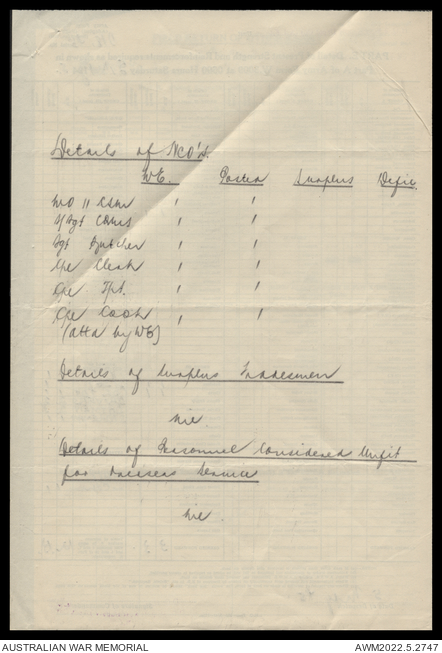 Details of NCO's.
W.E. Posted Surplus Defic.
WO II CSM ' '
S/Sgt CQMS ' '
Sgt Butcher ' '
Cpl Clerk ' '
Cpl Tpt. ' '
Cpl Cook ' '
(atta by WE)
Details of Surplus Tradesmen
Nil
Details of Personnel Considered Unfit
for Overseas Service
Nil
AUSTRALIAN WAR MEMORIAL
AWM2022.5.2747